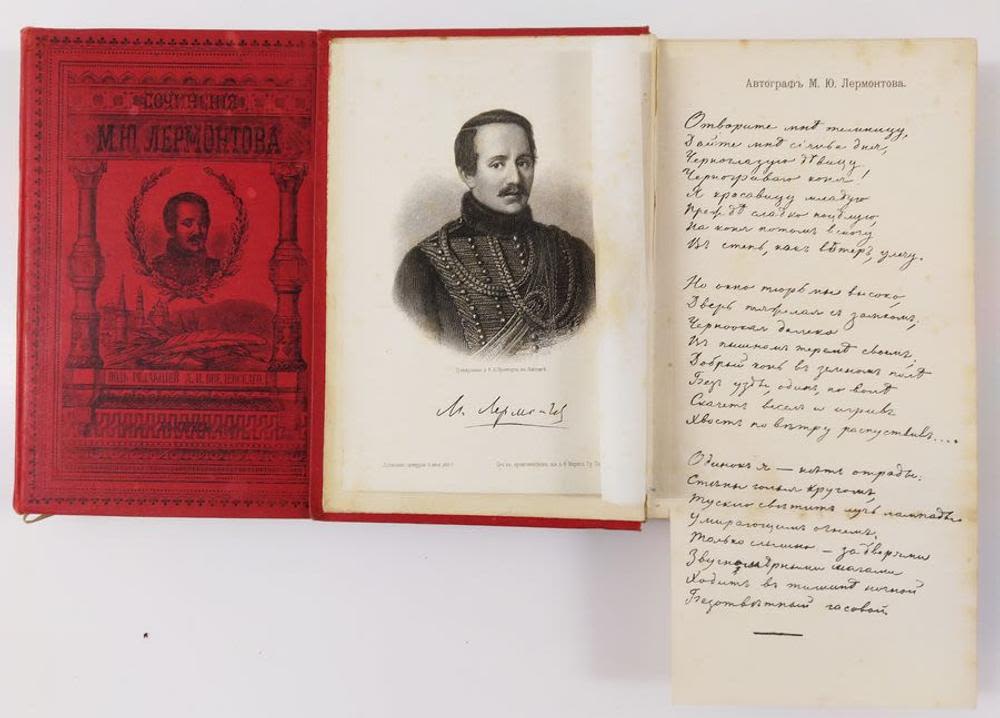 СОЧИНЕНІЯ
М.Ю. ЛЕРМОНТОВА
ПОДЪ РЕДАКЦІЕЙ А.И. ВВЕДЕНСКАГО
М. Лермонтов
Автографъ М. Ю. Лермонтова.
Отворите мнѣ темницу,
Дайте мнѣ сіянье дня,
Черноглазую дѣвицу
Черногриваго коня!
Я красавицу младую
Прежде сладко поцѣлую,
На коня потомъ вскочу
Въ степь, какъ вѣтеръ, улечу.
Но окно тюрьмы высоко
Дверь тяжелая съ замкомъ;
Черноокая далеко
Въ пышномъ теремѣ своемъ;
Добрый конь въ зеленомъ полѣ
Безъ узды, одинъ, по волѣ
Скачетъ веселъ и игривъ
Хвостъ по вѣтру распустивъ....
Одинокъ я — нѣтъ отрады:
Стѣны голыя кругомъ,
Тускло свѣтитъ лучъ лампады
Умирающимъ огнемъ;
Только слышно — за дверями
Звучномѣрными шагами
Ходитъ въ тишинѣ ночной
Безотвѣтный часовой.